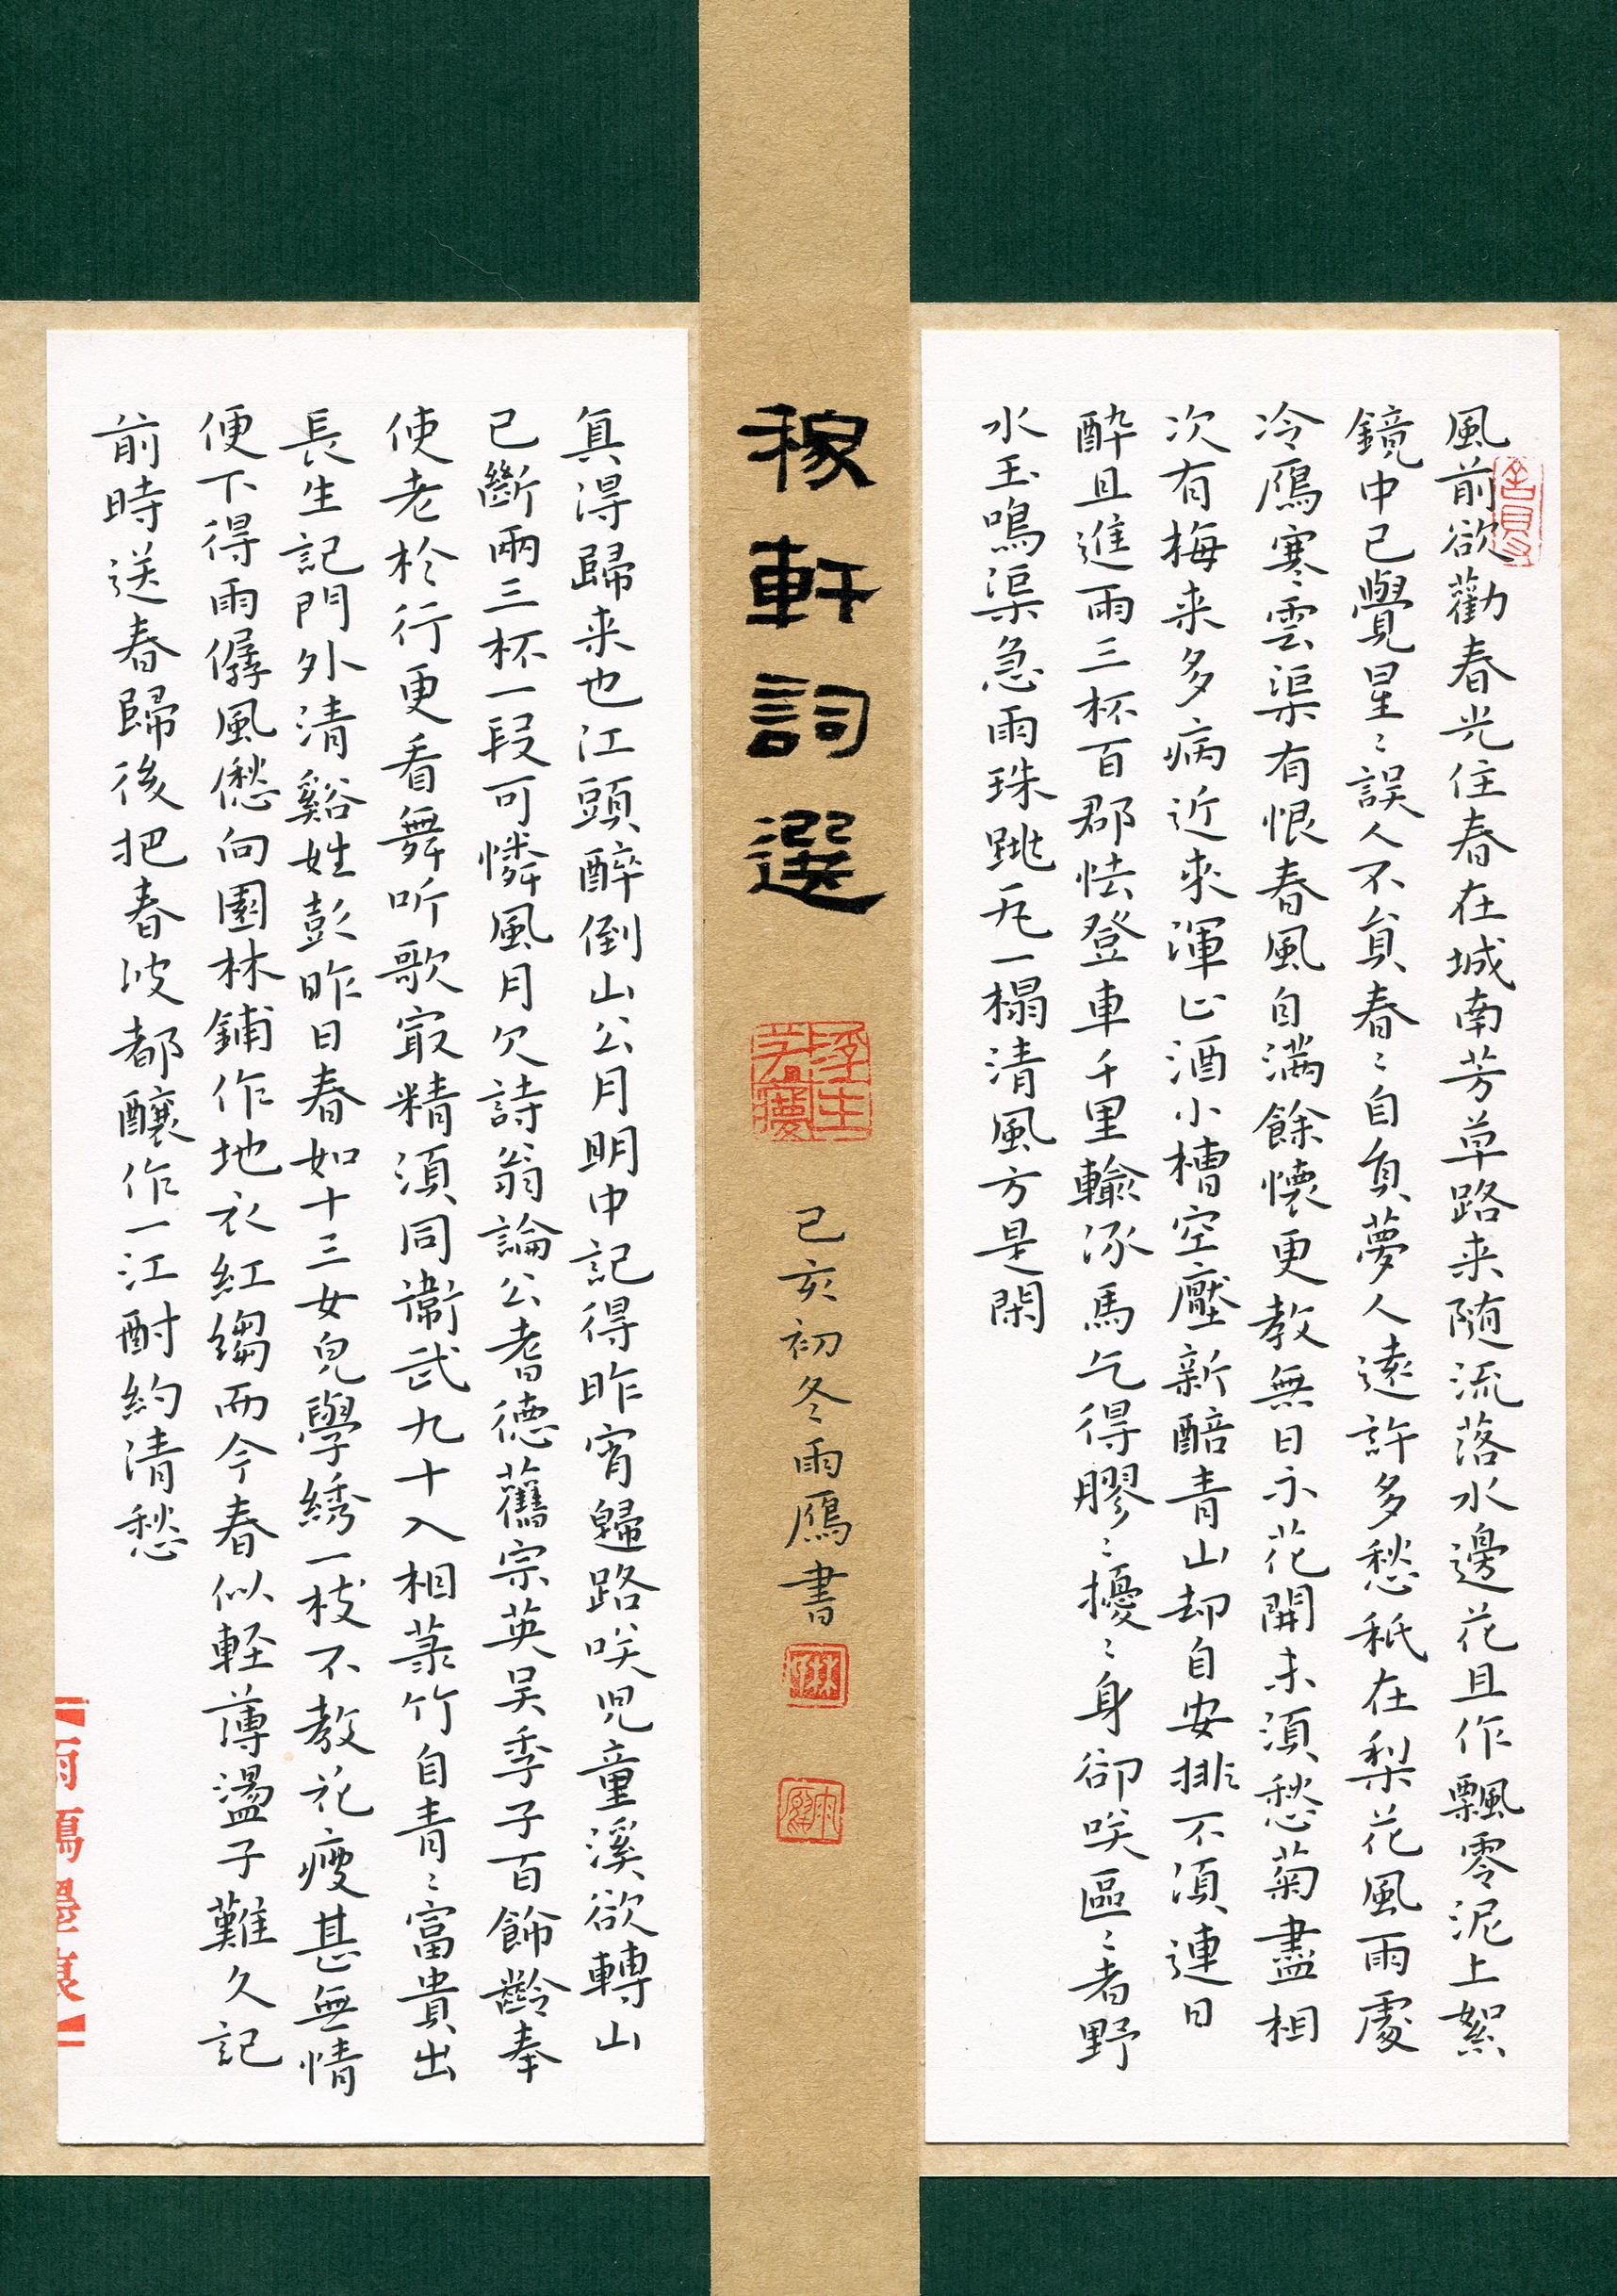 風前欲勸春光住春在城南芳草路来随流落水邊花且作飄零泥上絮
鏡中已覺星〻誤人不負春〻自負夢人遠許多愁秖在梨花風雨處
冷鴈寒雲渠有恨春風自滿餘懷更教無日不花開未須愁菊盡相
次有梅来多病近來渾止酒小槽空壓新醅青山却自安排不須連日
醉且進兩三杯百郡怯登車千里輸流馬乞得膠〻擾〻身卻咲區〻者野
水玉鳴渠急雨珠跳瓦一榻清風方是閑
稼軒詞選
己亥初冬雨鴈書
真得歸来也江頭醉倒山公月明中記得昨宵歸路咲児童溪欲轉山
已斷兩三杯一段可憐風月欠詩翁論公耆德舊宗英吴季子百餘齡奉
使老於行更看舞听歌㝡精須同衞武九十入相菉竹自青〻富貴出
長生記門外清谿姓彭昨日春如十三女兒學綉一枝不教花瘦甚無情
便下得雨僝風僽向園林鋪作地衣紅縐而今春似軽薄盪子難久記
前時送春歸後把春波都釀作一江酎約清愁